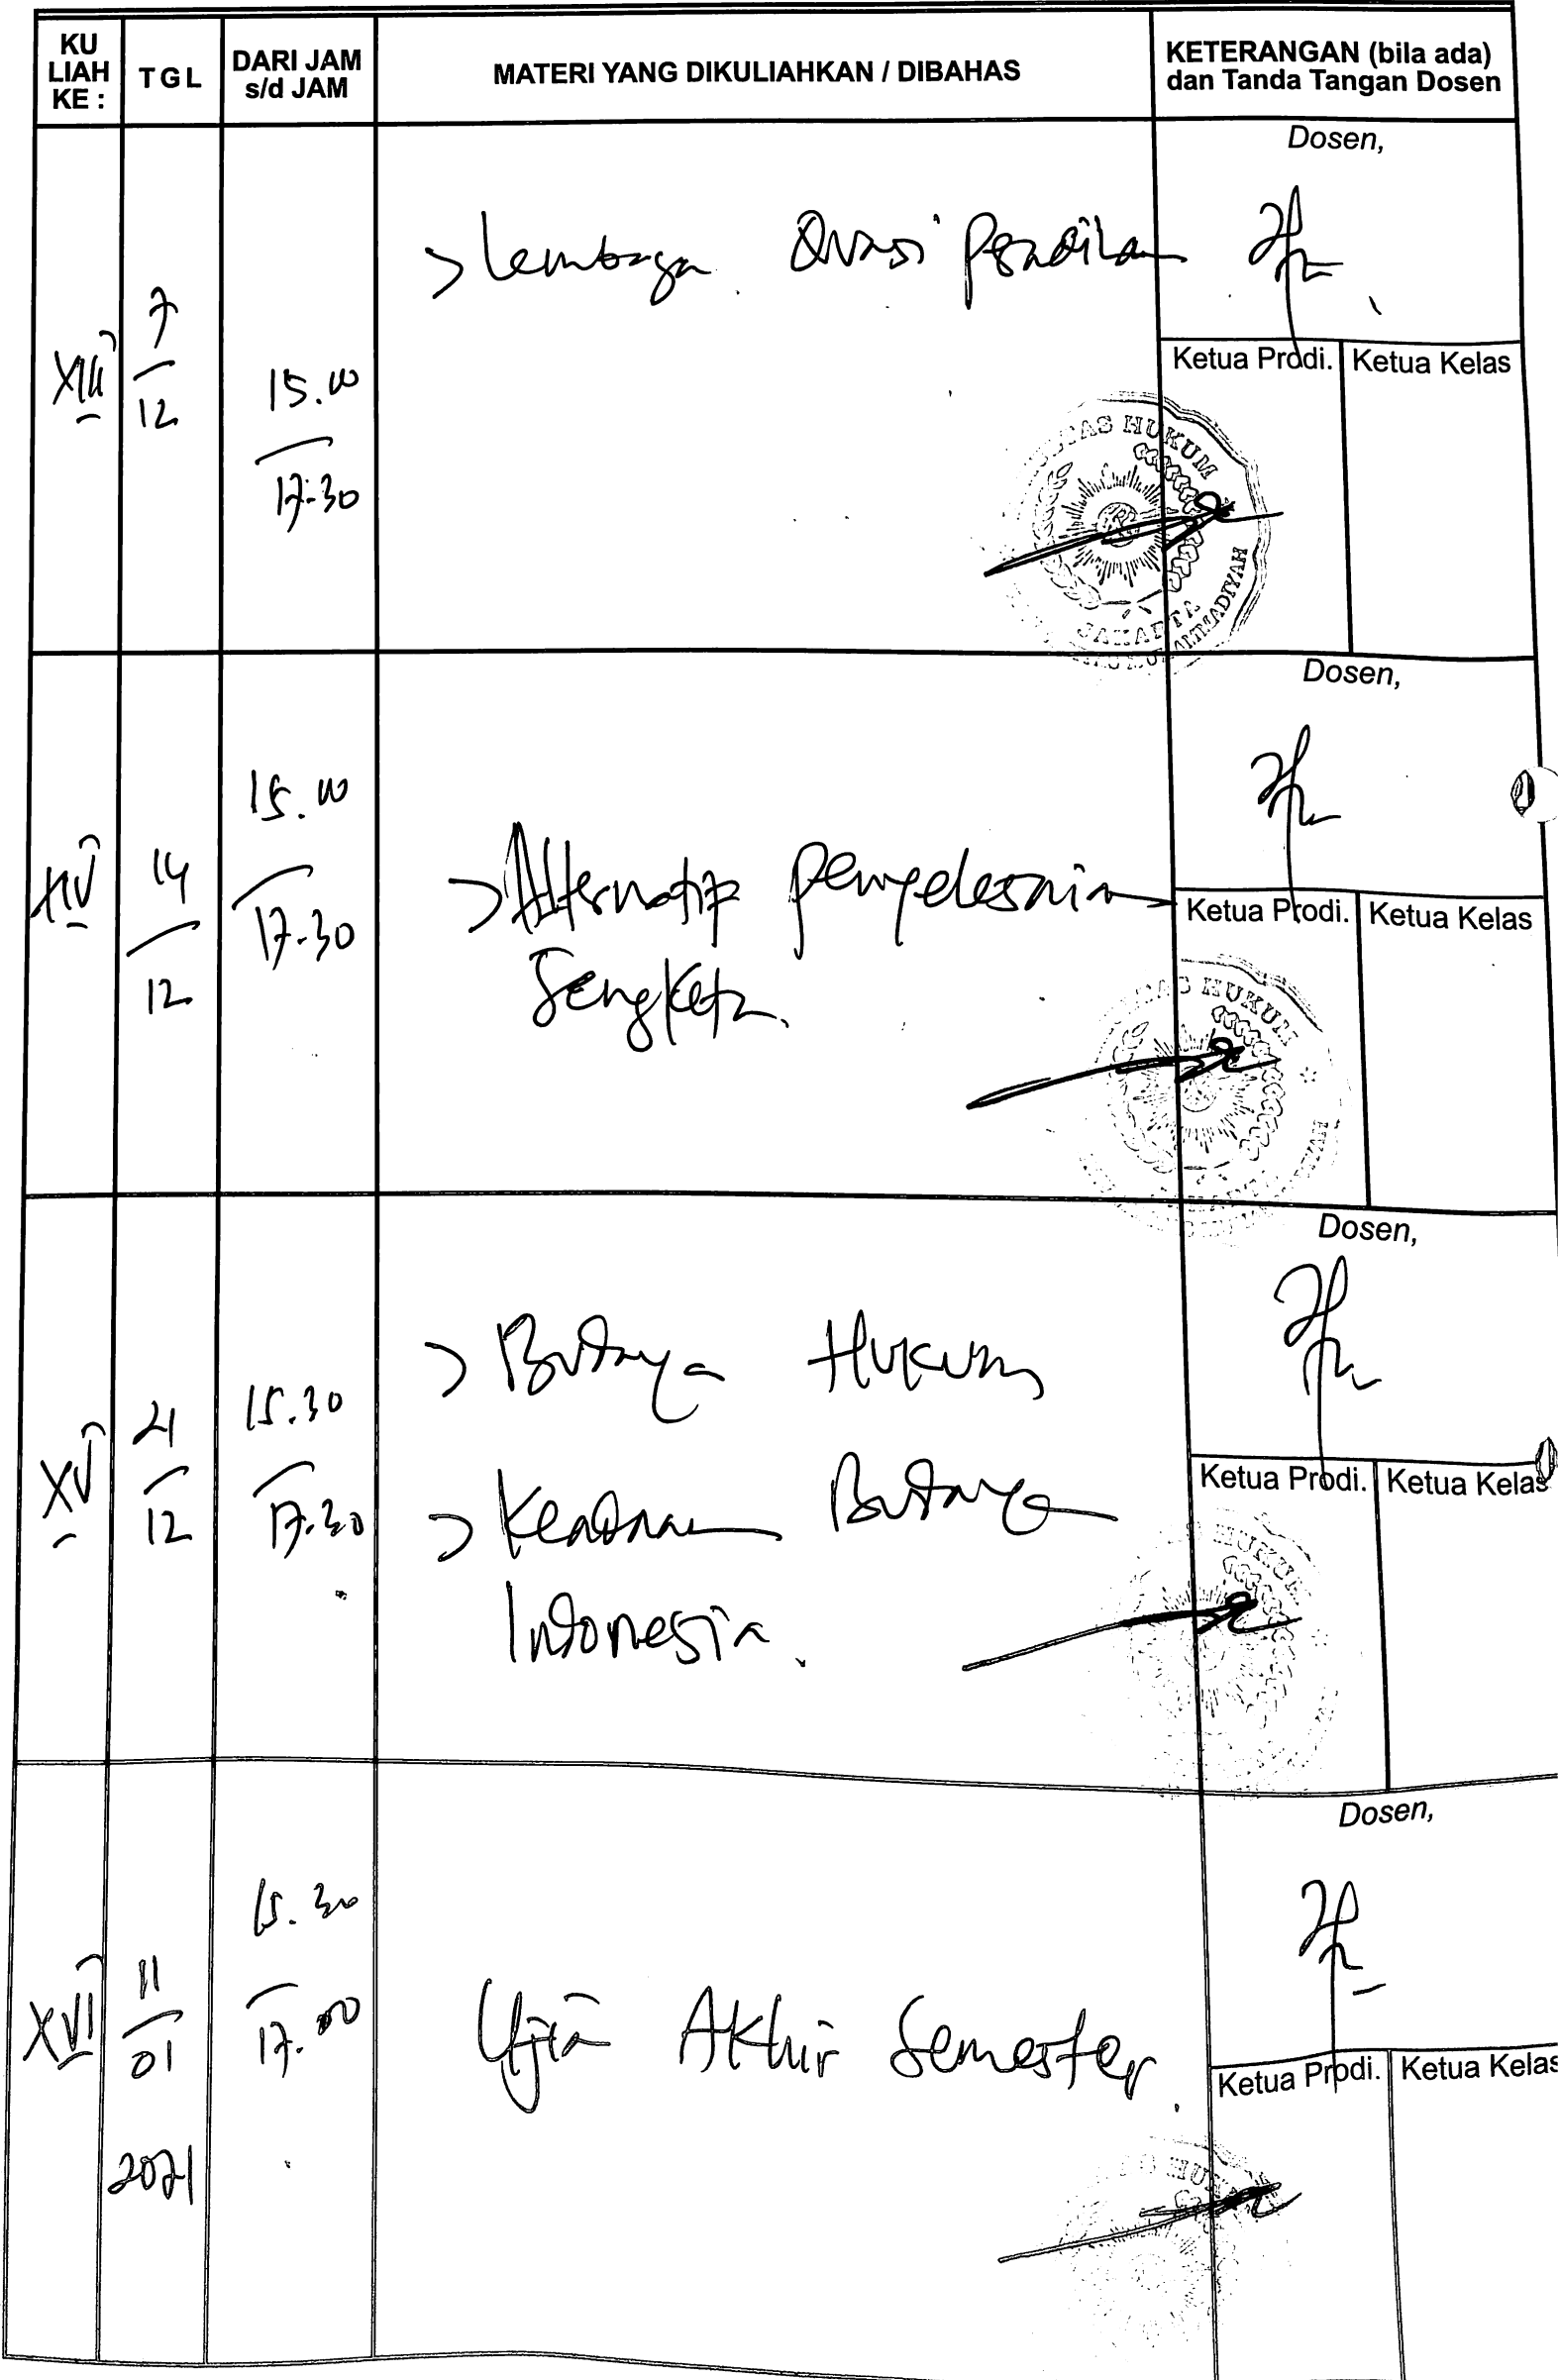 KU LIAH KE :
TGL
DARI JAM s/d JAM
MATERI YANG DIKULIAHKAN / DIBAHAS
KETERANGAN (bila ada) dan Tanda Tangan Dosen
XIII
7
12
15.00
17.30
> Lembaga Quasi Peradilan
Dosen,
Ketua Prodi.
Ketua Kelas
TAS HUKUM
JAKARTA
XIV
14
12
15.00
17.30
> Alternatip Penyelesaian
Sengketa.
Dosen,
Ketua Prodi.
Ketua Kelas
HUKUM
XV
21
12
15.30
17.30
> Budaya Hukum
> Keadaan Budaya
Indonesia.
Dosen,
Ketua Prodi.
Ketua Kelas
HUKUM
XVI
11
01
2021
15.30
17.00
Ujian Akhir Semester.
Dosen,
Ketua Prodi.
Ketua Kelas